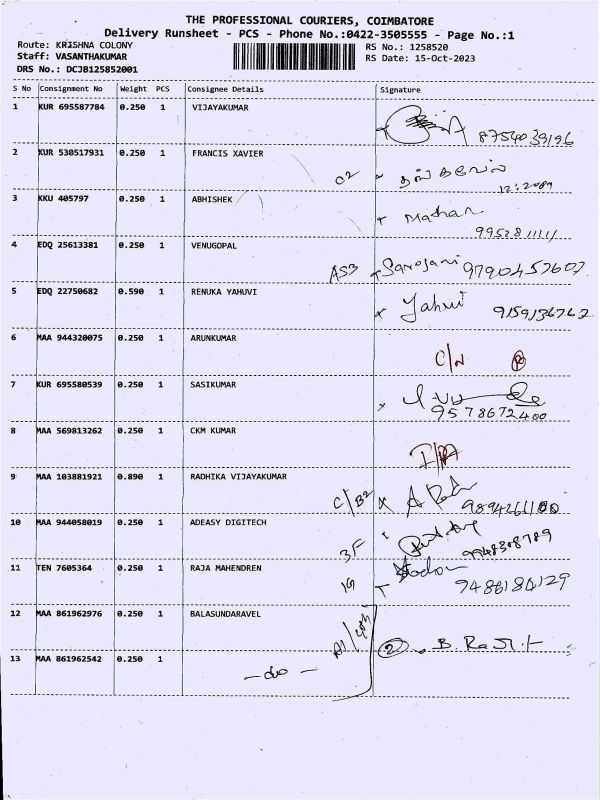 THE PROFESSIONAL COURIERS, COIMBATORE
Delivery Runsheet - PCS - Phone No.:0422-3505555 - Page No.:1
Route: KRISHNA COLONY
RS No.: 1258520
Staff: VASANTHAKUMAR
RS Date: 15-Oct-2023
DRS No.: DCJB125852001
S No Consignment No Weight PCS Consignee Details Signature
1 KUR 695587784 0.250 1 VIJAYAKUMAR
8754039196
2 KUR 530517931 0.250 1 FRANCIS XAVIER
C2 தங்கவேல்
3 KKU 405797 0.250 1 ABHISHEK
Mathan
995281111
4 EDQ 25613381 0.250 1 VENUGOPAL
AS3 Sarojani 9790457607
5 EDQ 22750682 0.590 1 RENUKA YAHUVI
Yahvi 9159136762
6 MAA 944320075 0.250 1 ARUNKUMAR
C/N
7 KUR 695580539 0.250 1 SASIKUMAR
9578672400
8 MAA 569813262 0.250 1 CKM KUMAR
9 MAA 103881921 0.890 1 RADHIKA VIJAYAKUMAR
C/B2
10 MAA 944058019 0.250 1 ADEASY DIGITECH
3F
11 TEN 7605364 0.250 1 RAJA MAHENDREN
9486180129
12 MAA 861962976 0.250 1 BALASUNDARAVEL
2 B.
13 MAA 861962542 0.250 1
— do —